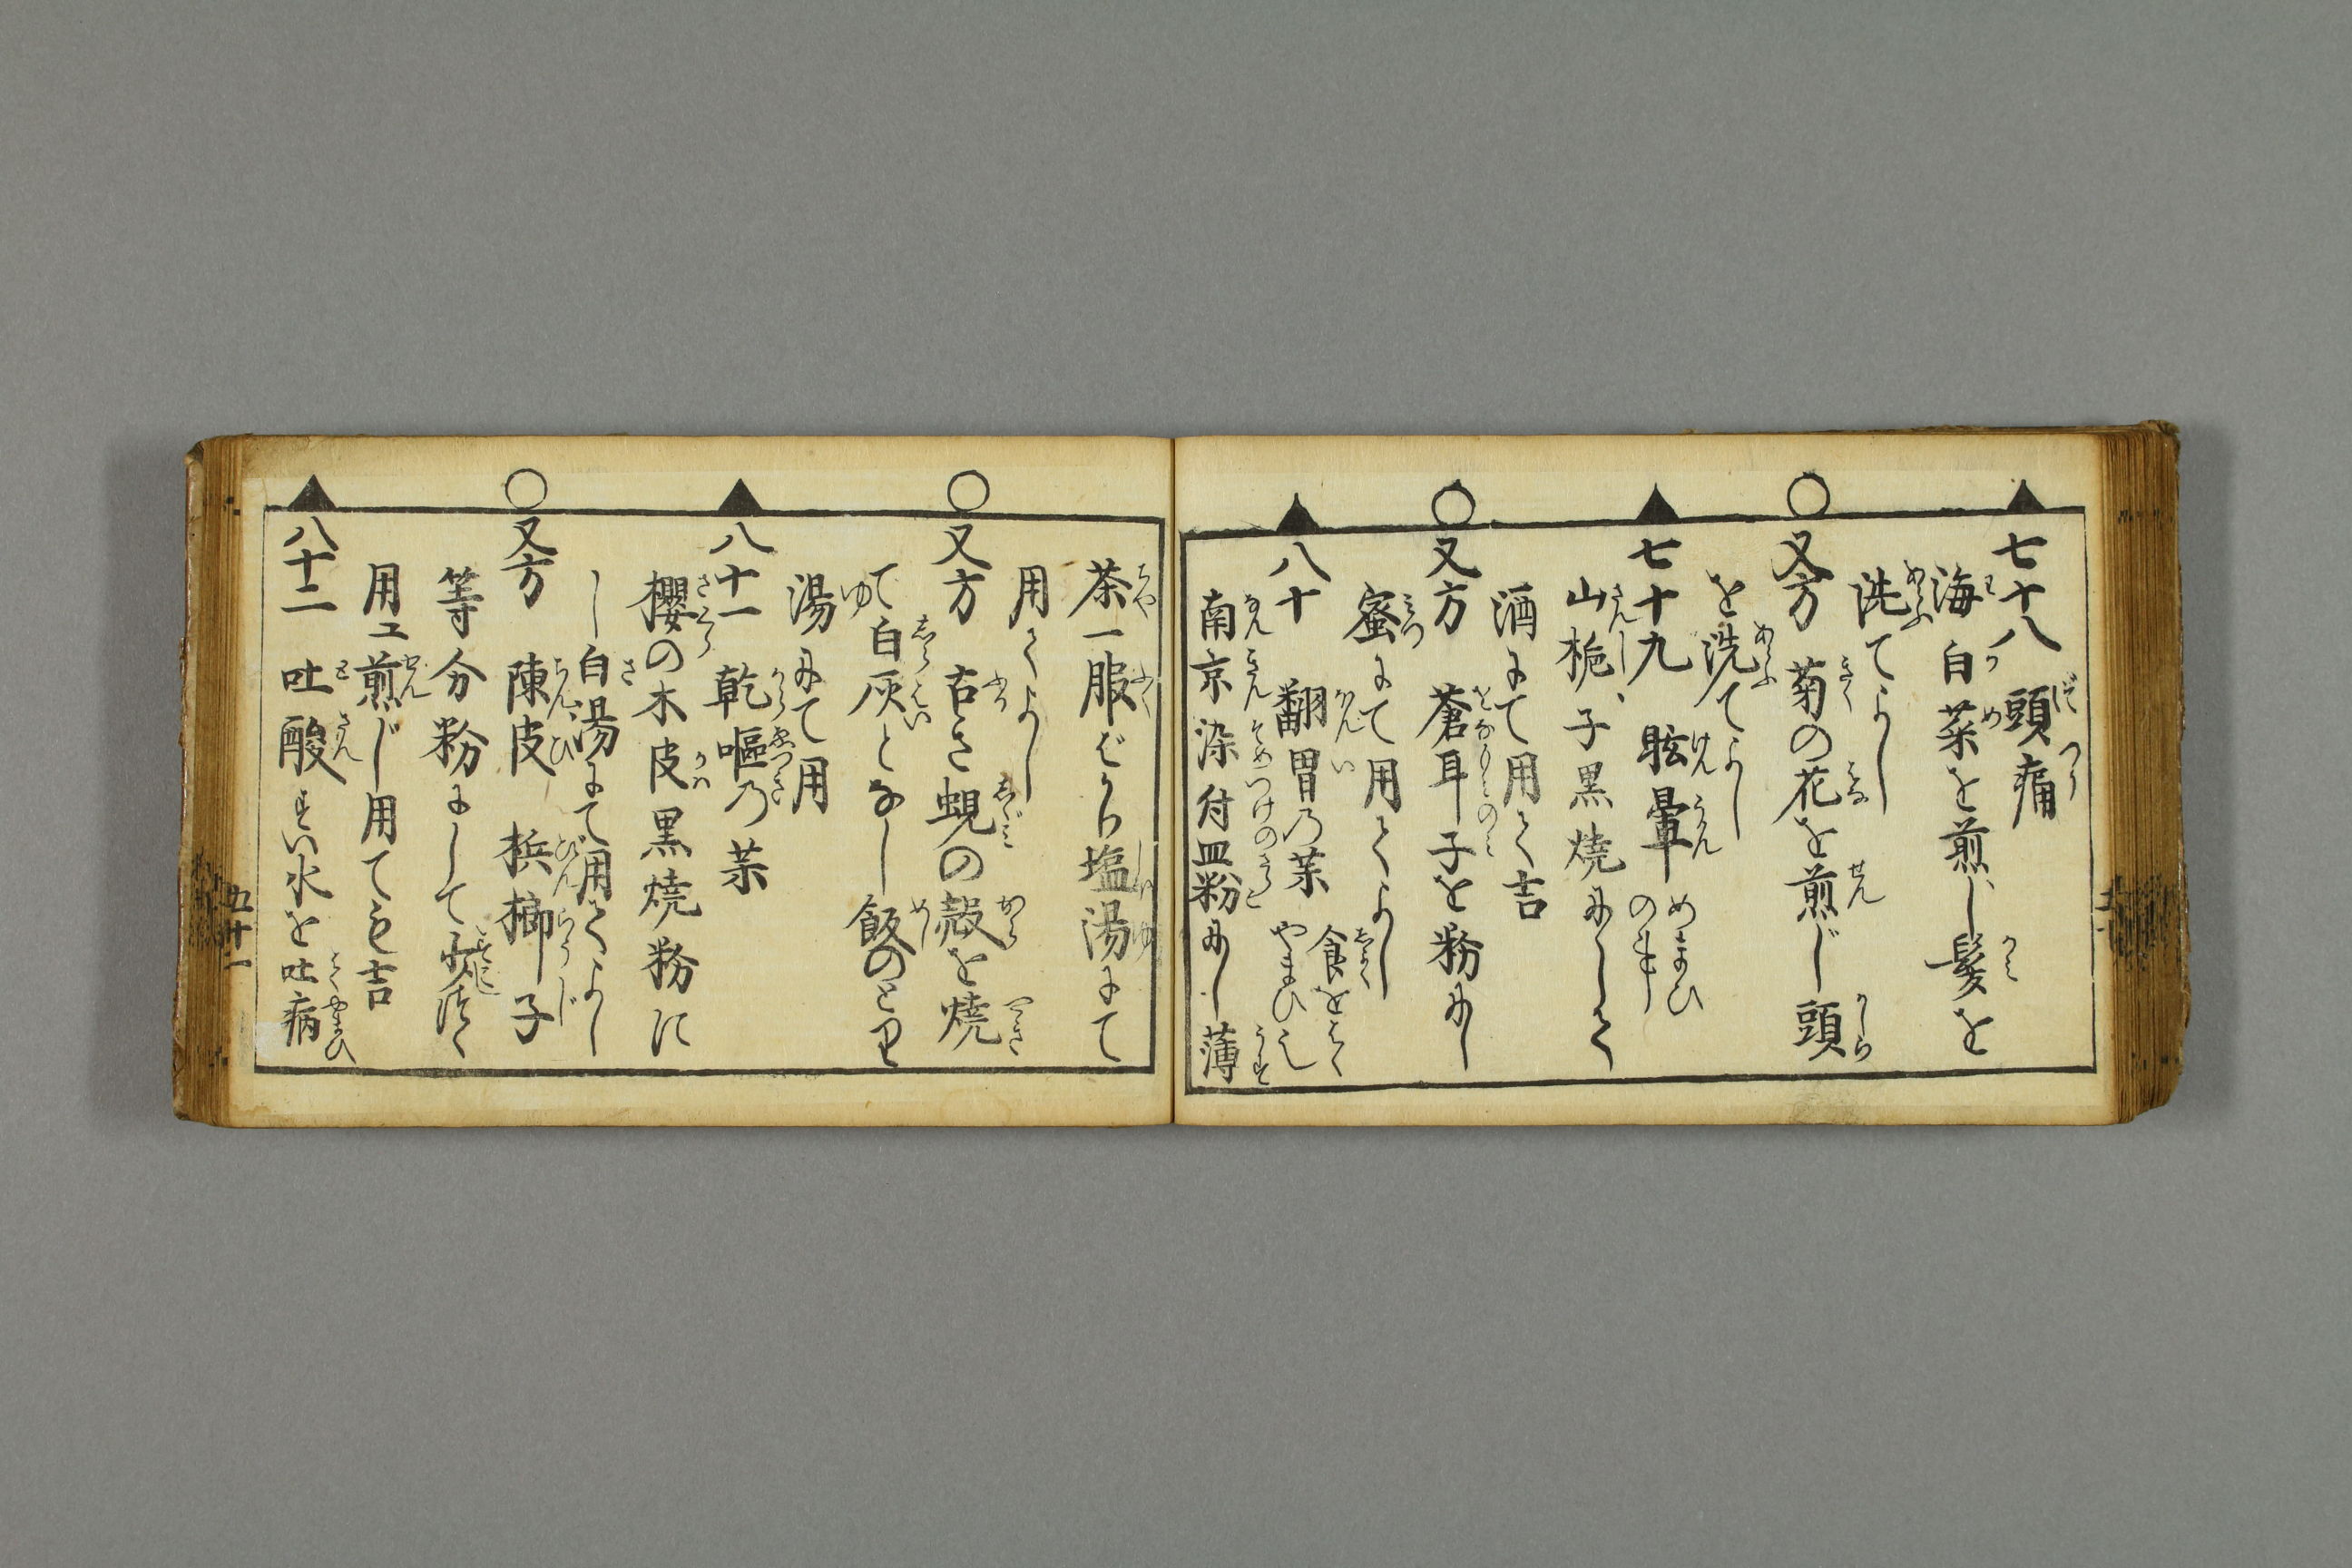 七十八 頭痛
海白菜を煎じ髪を
洗てよし
又方 菊の花を煎じ頭
を洗てよし
七十九 眩暈 めまひのまし
山梔子黒焼にして
酒にて用て吉
又方 蒼耳子を粉にし
蜜にて用てよし
八十 翻胃乃薬 食をはくやまひ也
南京染付皿粉にし薄
茶一服ばかり塩湯にて
用てよし
又方 古き蜆の殻を焼
て白灰となし飯のとり
湯にて用
八十一 乾嘔乃薬
櫻の木皮黒焼粉に
し白湯にて用てよし
又方 陳皮 梹榔子
等分粉にして少づゝ
用ユ煎じ用ても吉
八十二 吐酸 すい水を吐病
五十一